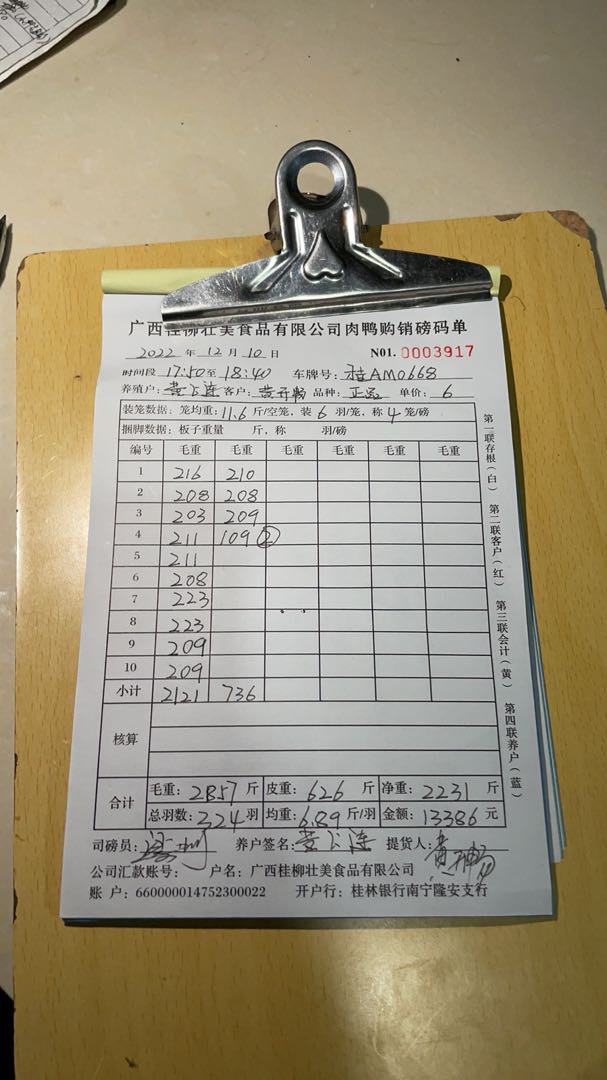 广西桂柳壮美食品有限公司肉鸭购销磅码单
2022 年 12 月 10 日 NO1. 0003917
时间段 17:50至 18:40 车牌号: 桂AM0668
养殖户: 黄公连 客户: 黄开畅 品种: 单价: 6
装笼数据: 笼均重: 11.6 斤/空笼, 装 6 羽/笼, 称 4 笼/磅
捆脚数据: 板子重量 斤, 称 羽/磅
编号 毛重 毛重 毛重 毛重 毛重 毛重
1 216 210
2 208 208
3 203 209
4 211 109 ②
5 211
6 208
7 223
8 223
9 209
10 209
小计 2121 736
核算
合计 毛重: 2857 斤 皮重: 626 斤 净重: 2231 斤
总羽数: 324 羽 均重: 6.89 斤/羽 金额: 13386 元
司磅员: 养户签名: 黄公连 提货人:
公司汇款账号: 户名: 广西桂柳壮美食品有限公司
账 户: 660000014752300022 开户行: 桂林银行南宁隆安支行
第一联存根(白) 第二联客户(红) 第三联会计(黄) 第四联养户(蓝)